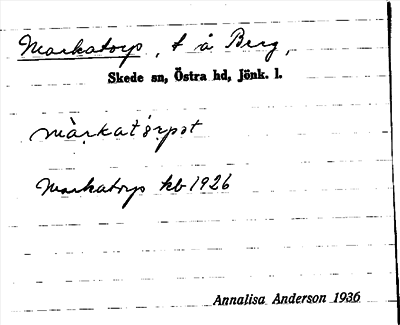 Markatorp, t å Berg,
Skede sn, Östra hd, Jönk. l.
màrkatòrpət
Markatorp kb 1926
Annalisa Anderson 1936